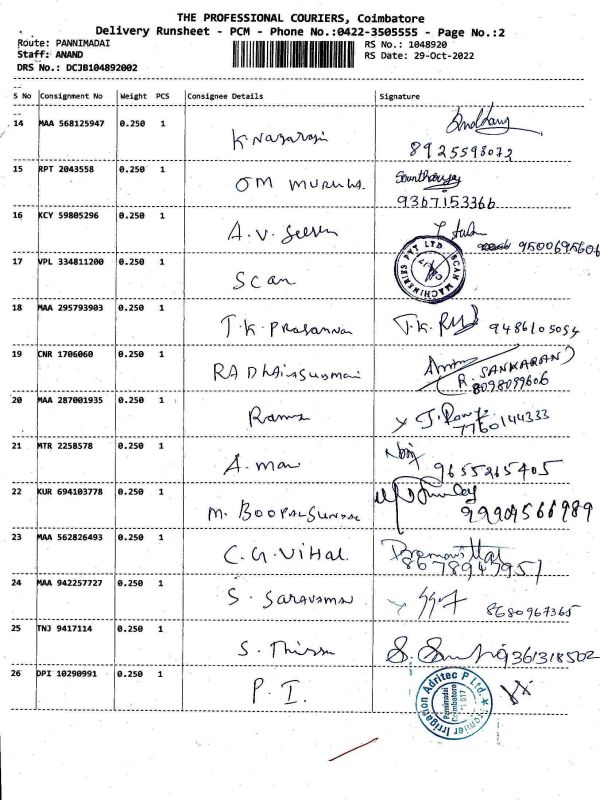 THE PROFESSIONAL COURIERS, Coimbatore
Delivery Runsheet - PCM - Phone No.:0422-3505555 - Page No.:2
Route: PANNIMADAI
RS No.: 1048920
Staff: ANAND
RS Date: 29-Oct-2022
DRS No.: DCJB104892002
S No Consignment No Weight PCS Consignee Details Signature
14 MAA 568125947 0.250 1 K. Nagaraji
8925593072
15 RPT 2043558 0.250 1 OM MURUGA
9367153366
16 KCY 59805296 0.250 1 A.V. 9500695606
17 VPL 334811200 0.250 1 Scan
SCAN MACHINERIES PVT LTD
18 MAA 295793903 0.250 1 T.K. Prasanna T.K. 9486105054
19 CNR 1706060 0.250 1
(R. SANKARAN)
8098099606
20 MAA 287001935 0.250 1 Rama
7760144333
21 MTR 2258578 0.250 1 A. man
9655265405
22 KUR 694103778 0.250 1 M. BOOPALSUNDAR
23 MAA 562826493 0.250 1 C.G. Vittal
8678947951
24 MAA 942257727 0.250 1 S. Saravanan 8680967365
25 TNJ 9417114 0.250 1 S. 9361318502
26 DPI 10290991 0.250 1 P. I.
Premier Irrigation Adritec P Ltd.
Pannimadai
Coimbatore